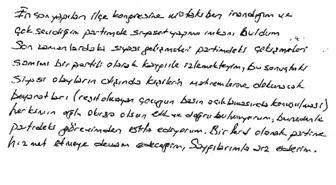 En son yapılan ilçe kongresine istinaden inandığım ve
çok sevdiğim partimde siyaset yapma imkanı buldum
Son zamanlardaki siyasi gelişmeleri partimdeki gelişmeleri
samimi bir partili olarak kaygıyla izlemekteyim, bu sonuçtaki
siyasi olayların dışında kişilerin mahremlerine dokunacak
beyanatları (reşit olmayan çocuğun basın açıklamasında konuşulması)
her kimin ağzı olursa olsun etik ve doğru bulmuyorum, bu nedenle
partideki görevimden istifa ediyorum. Bir fert olarak partime
hizmet etmeye devam edeceğim, Saygılarımla arz ederim.